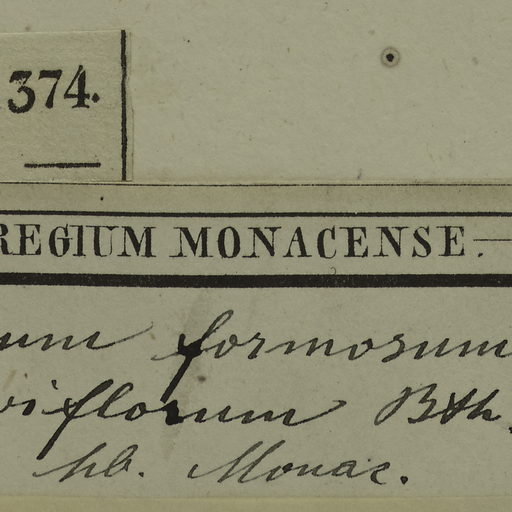 374.
REGIUM MONACENSE.
um formosum
iflorum Bth.
hb. Monac.